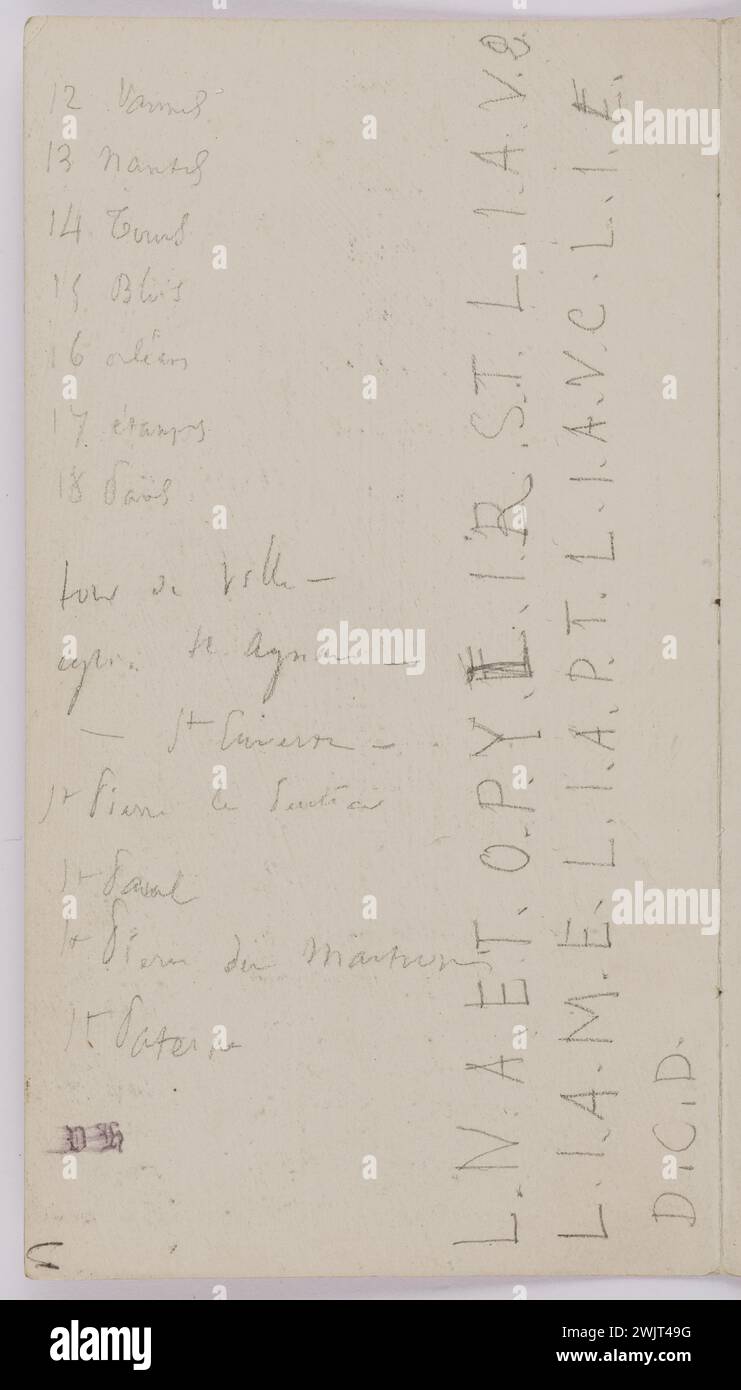 12 Vannes
13 Nantes
14 Tours
15 Blois
16 orléans
17 étampes
18 Paris
tour de ville —
église St Aignan —
— St Euverte —
St Pierre le
St Paul
St Pierre du
St Paterne
L.N.A.E.T.O.P.Y.L.I.R.S.T.L.I.A.V.2
L.I.A.M.E.L.I.A.P.T.L.I.A.V.C.L.I.E.
D.C.D.
alamy
Image ID: 2WJT49G
www.alamy.com